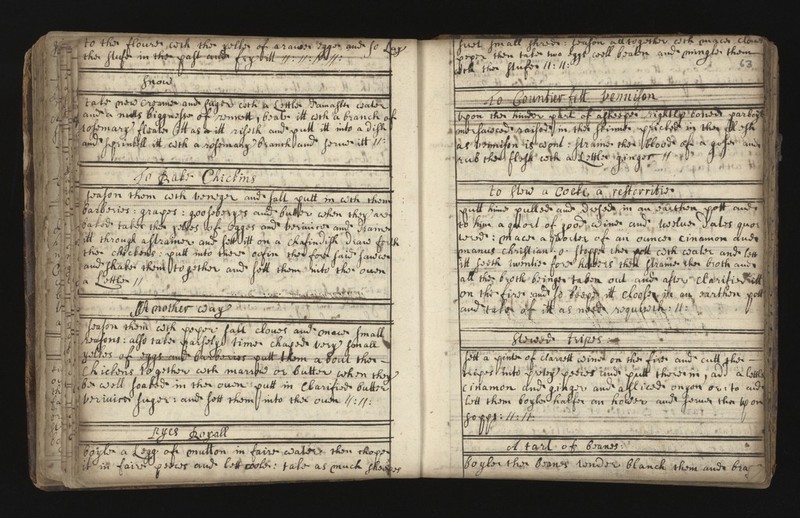 to the floure with the yelke of a rawe egge and so Lay
the stufe in the past and fry itt //:://::
Snow
take new creame and suger with a Little damaske water
and a nutts biggnesse of rennett, beate itt with a branch of
rosemary fleate itt as itt riseth and putt itt into a dish
and sprinkell itt with a rosemary branch and serue itt //
To Bake Chickins
season them with veneger and salt putt in with them
barberies: grapes: gooseberyes and butter when they are
baked take the yelkes of egges and veruice and straine
itt through a strainer and sett itt on a chafindish draw forth
the chickens: putt into there coffin the fore said sawce
and shake them together and sett them into the ouen
a Lettle //
Another way
season them with peper salt cloues and mace small
reasons: also take parsely time choped very small
yelkes of eggs and barberies putt them about the
Chickins together with marrow or butter when they
be well soaked in the ouen putt in clarified butter
veruice suger: and sett them into the ouen //:://::
Pyes Royall
boyle a Legg of mutton in faire water then chope
itt in faire peeces and lett coole: take as much sheepes
suet small shred: season all together with mace clou
peper then take two eggs well beaten and mingle them
with the stufe //:://::
63
to Countier fitt vennison
vpon the hinder part of a sheepe rightly boned parboy
me
as vennison is wont: straine the blood of a and
rub the flesh with a Lettle ginger //
to stew a Cocke a resterritie
putt him pulled and dresed in an earthen pott and
to him a quart of good wine and twelue dates quar
tered: mace a quarter of an ounce cinamon and
manus Christian: stoppe the pott with water and lett
itt seeth twentie fore howers then straine the broth and
all the broth beinge taken out and after clarifie itt
on the fire and so keepe itt closse in an earthen pott
and take of itt as need requireth: //::
Stewed tripes:
sett a pinte of clarett wine on the fire and cutt the
tripes into pretty peeces and putt there in, and a lettle
cinamon and ginger and a sliced onyon or to and
lett them boyle halfe an hower and serue them vpon
sopps: //:://
A tart of beanes
boyle the beanes tender blanch them and